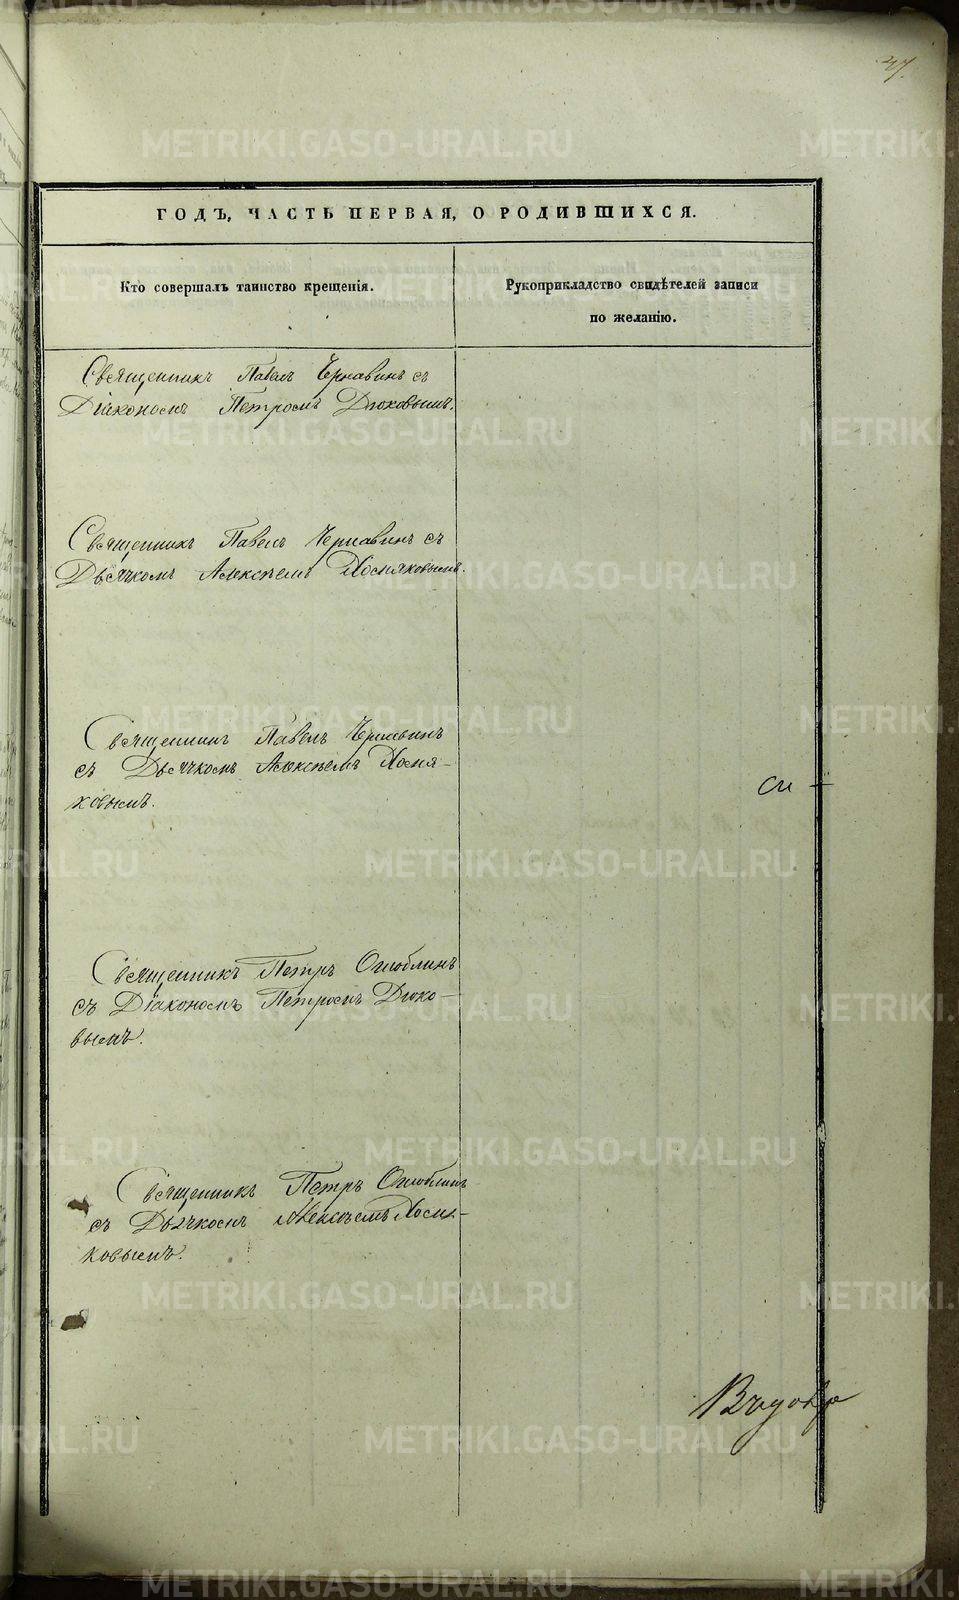 37.
ГОДЪ, ЧАСТЬ ПЕРВАЯ, О РОДИВШИХСЯ.
Кто совершалъ таинство крещенія.
Рукоприкладство свидѣтелей записи
по желанію.
Священникъ Павелъ Чернавинъ съ
Діакономъ Петромъ Дюковымъ.
Священникъ Павелъ Чернавинъ съ
Дьячкомъ Алексѣемъ Хосняковымъ.
Священникъ Павелъ Чернавинъ
съ Дьячкомъ Алексѣемъ Хосня-
ковымъ.
Священникъ Петръ Оглоблинъ
съ Діакономъ Петромъ Дюко-
вымъ.
Священникъ Петръ Оглоблинъ
съ Дьячкомъ Алексѣемъ Хосня-
ковымъ.
METRIKI.GASO-URAL.RU